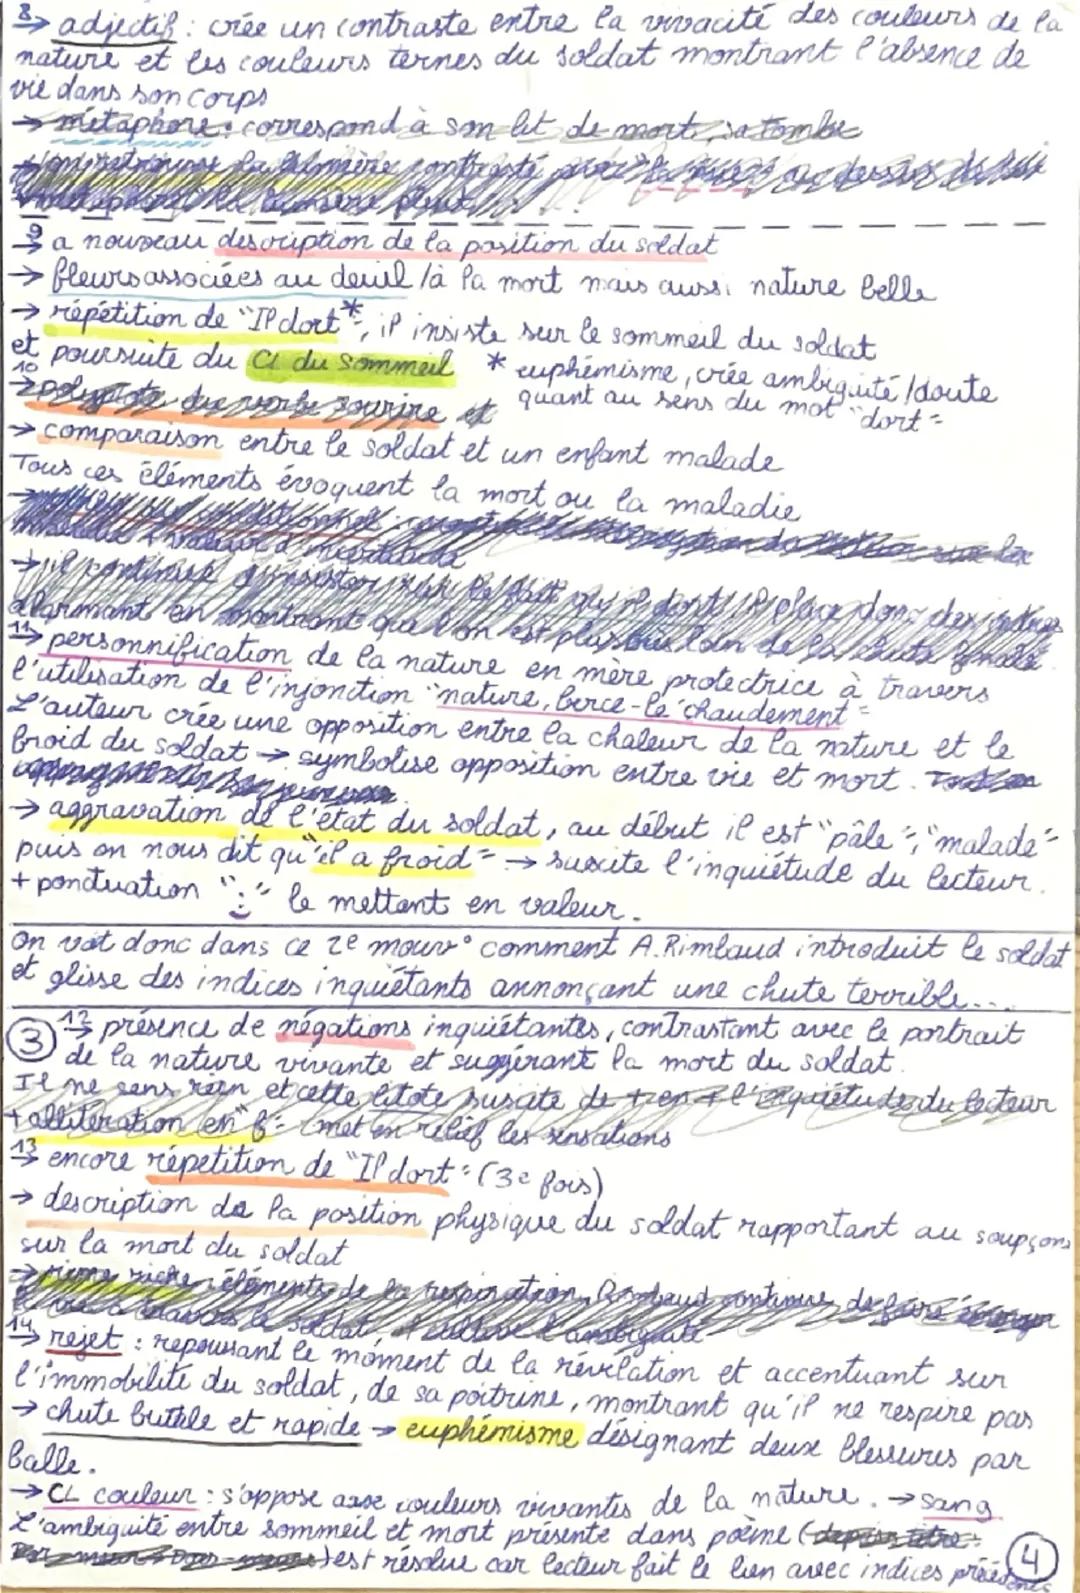 8→ adjectif : crée un contraste entre la vivacité des couleurs de la
nature et les couleurs ternes du soldat montrant l'absence de
vie dans son corps
→ métaphore : correspond à son lit de mort, sa tombe
9→ a nouveau description de la position du soldat
→ fleurs associées au deuil /à la mort mais aussi nature belle
→ répétition de "Il dort"*, il insiste sur le sommeil du soldat
et poursuite du CL du sommeil
* euphémisme, crée ambiguïté /doute
quant au sens du mot "dort"
10→ polyptote du verbe sourire et
→ comparaison entre le soldat et un enfant malade
Tous ces éléments évoquent la mort ou la maladie
→ il continue d'insister sur le fait qu'il dort. Il place donc des indices
alarmant en montrant que l'on est plus
11→ personnification de la nature en mère protectrice à travers
l'utilisation de l'injonction "nature, berce-le chaudement"
L'auteur crée une opposition entre la chaleur de la nature et le
froid du soldat → symbolise opposition entre vie et mort.
→ aggravation de l'état du soldat, au début il est "pâle", "malade"
puis on nous dit qu'"il a froid" → suscite l'inquiétude du lecteur.
+ ponctuation ":" le mettant en valeur.
On voit donc dans ce 2e mouv° comment A. Rimbaud introduit le soldat
et glisse des indices inquiétants annonçant une chute terrible...
3 12→ présence de négations inquiétantes, contrastant avec le portrait
de la nature vivante et suggérant la mort du soldat.
Il ne sens rien et cette litote suscite de + en + l'inquiétude du lecteur
+ allitération en "f" : met en relief les sensations
13→ encore répetition de "Il dort" (3e fois)
→ description de la position physique du soldat rapportant au soupçons
sur la mort du soldat
→ rime riche : éléments de la respiration, Rimbaud continue de faire
14→ rejet : repoussant le moment de la révélation et accentuant sur
l'immobilité du soldat, de sa poitrine, montrant qu'il ne respire pas
→ chute brutale et rapide → euphémisme désignant deux blessures par
balle.
→ CL couleur : s'oppose aux couleurs vivantes de la nature. → sang
L'ambiguïté entre sommeil et mort présente dans poème (
) est résolue car lecteur fait le lien avec indices précédents
4